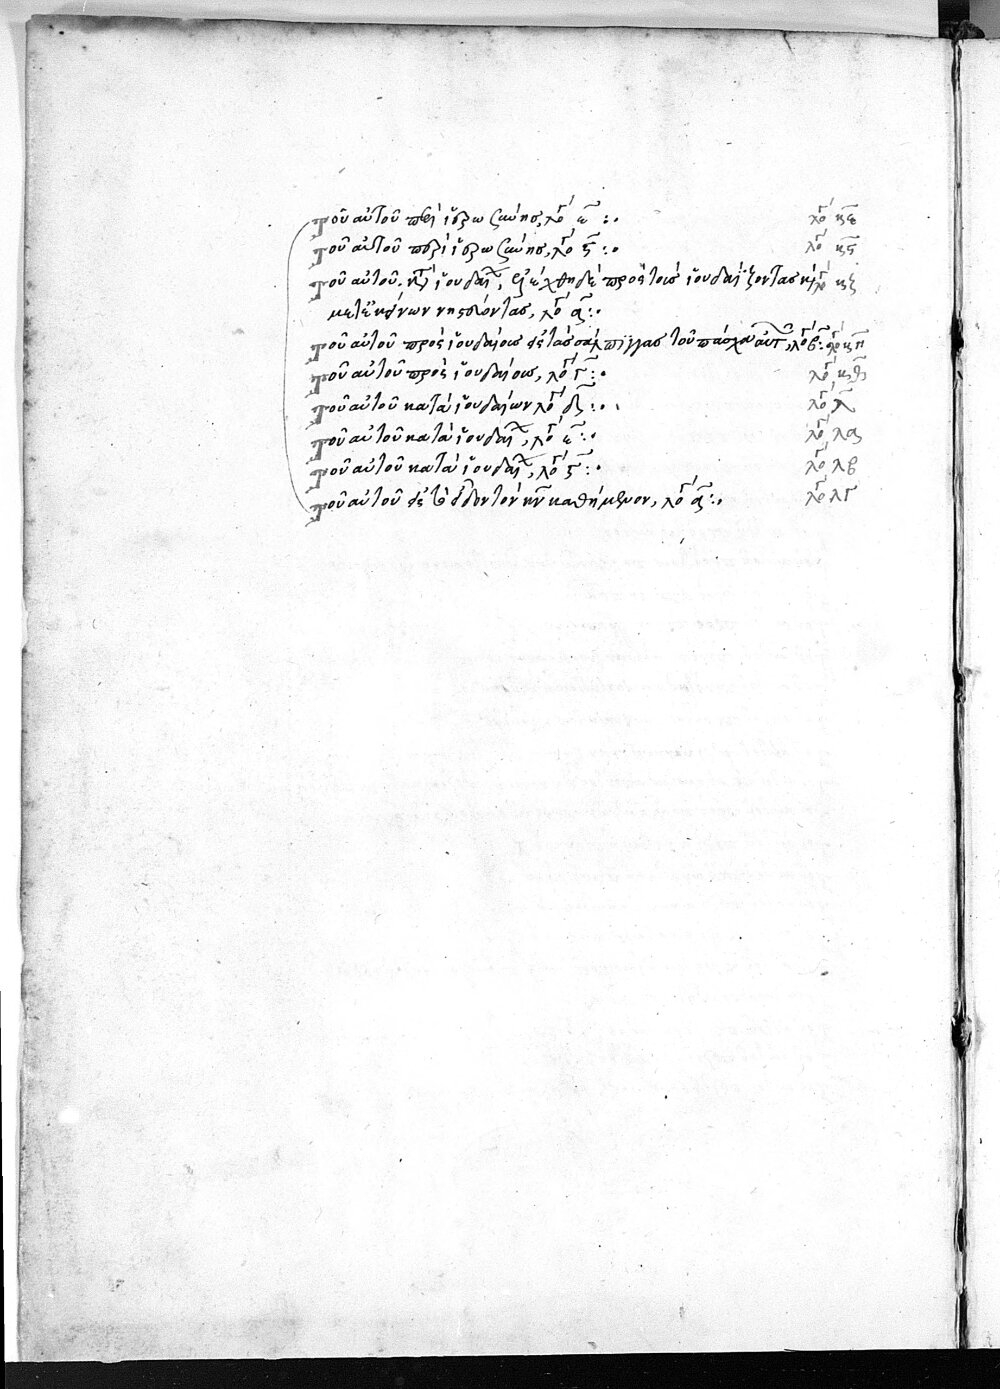 Τοῦ αὐτοῦ περὶ ἱερωσύνης, λόγ ε̅ :· λόγ κε̅
Τοῦ αὐτοῦ περὶ ἱερωσύνης, λόγ ϛ̅ :· λόγ κϛ̅
Τοῦ αὐτοῦ, κατ ἰουδαί, ἐλέχθη δὲ πρὸς τοὺς ἰουδαΐζοντας καὶ λόγ κζ
μετ ἐκείνων νηστεύοντας, λόγ α̅ :·
Τοῦ αὐτοῦ πρὸς ἰουδαίους εἰς τὰς σάλπιγγας τοῦ πάσχα αὐτ, λόγ β̅ :· λόγ κη̅
Τοῦ αὐτοῦ πρὸς ἰουδαίους, λόγ γ̅ :· λόγ κθ̅
Τοῦ αὐτοῦ κατὰ ἰουδαίων λόγ δ̅ :· λόγ λ̅
Τοῦ αὐτοῦ κατὰ ἰουδαί, λόγ ε̅ :· λόγ λα
Τοῦ αὐτοῦ κατὰ ἰουδαί, λόγ ϛ̅ :· λόγ λβ
Τοῦ αὐτοῦ εἰς τὸ εἶδον τὸν κν̅ καθήμενον, λόγ α̅ :· λόγ λγ